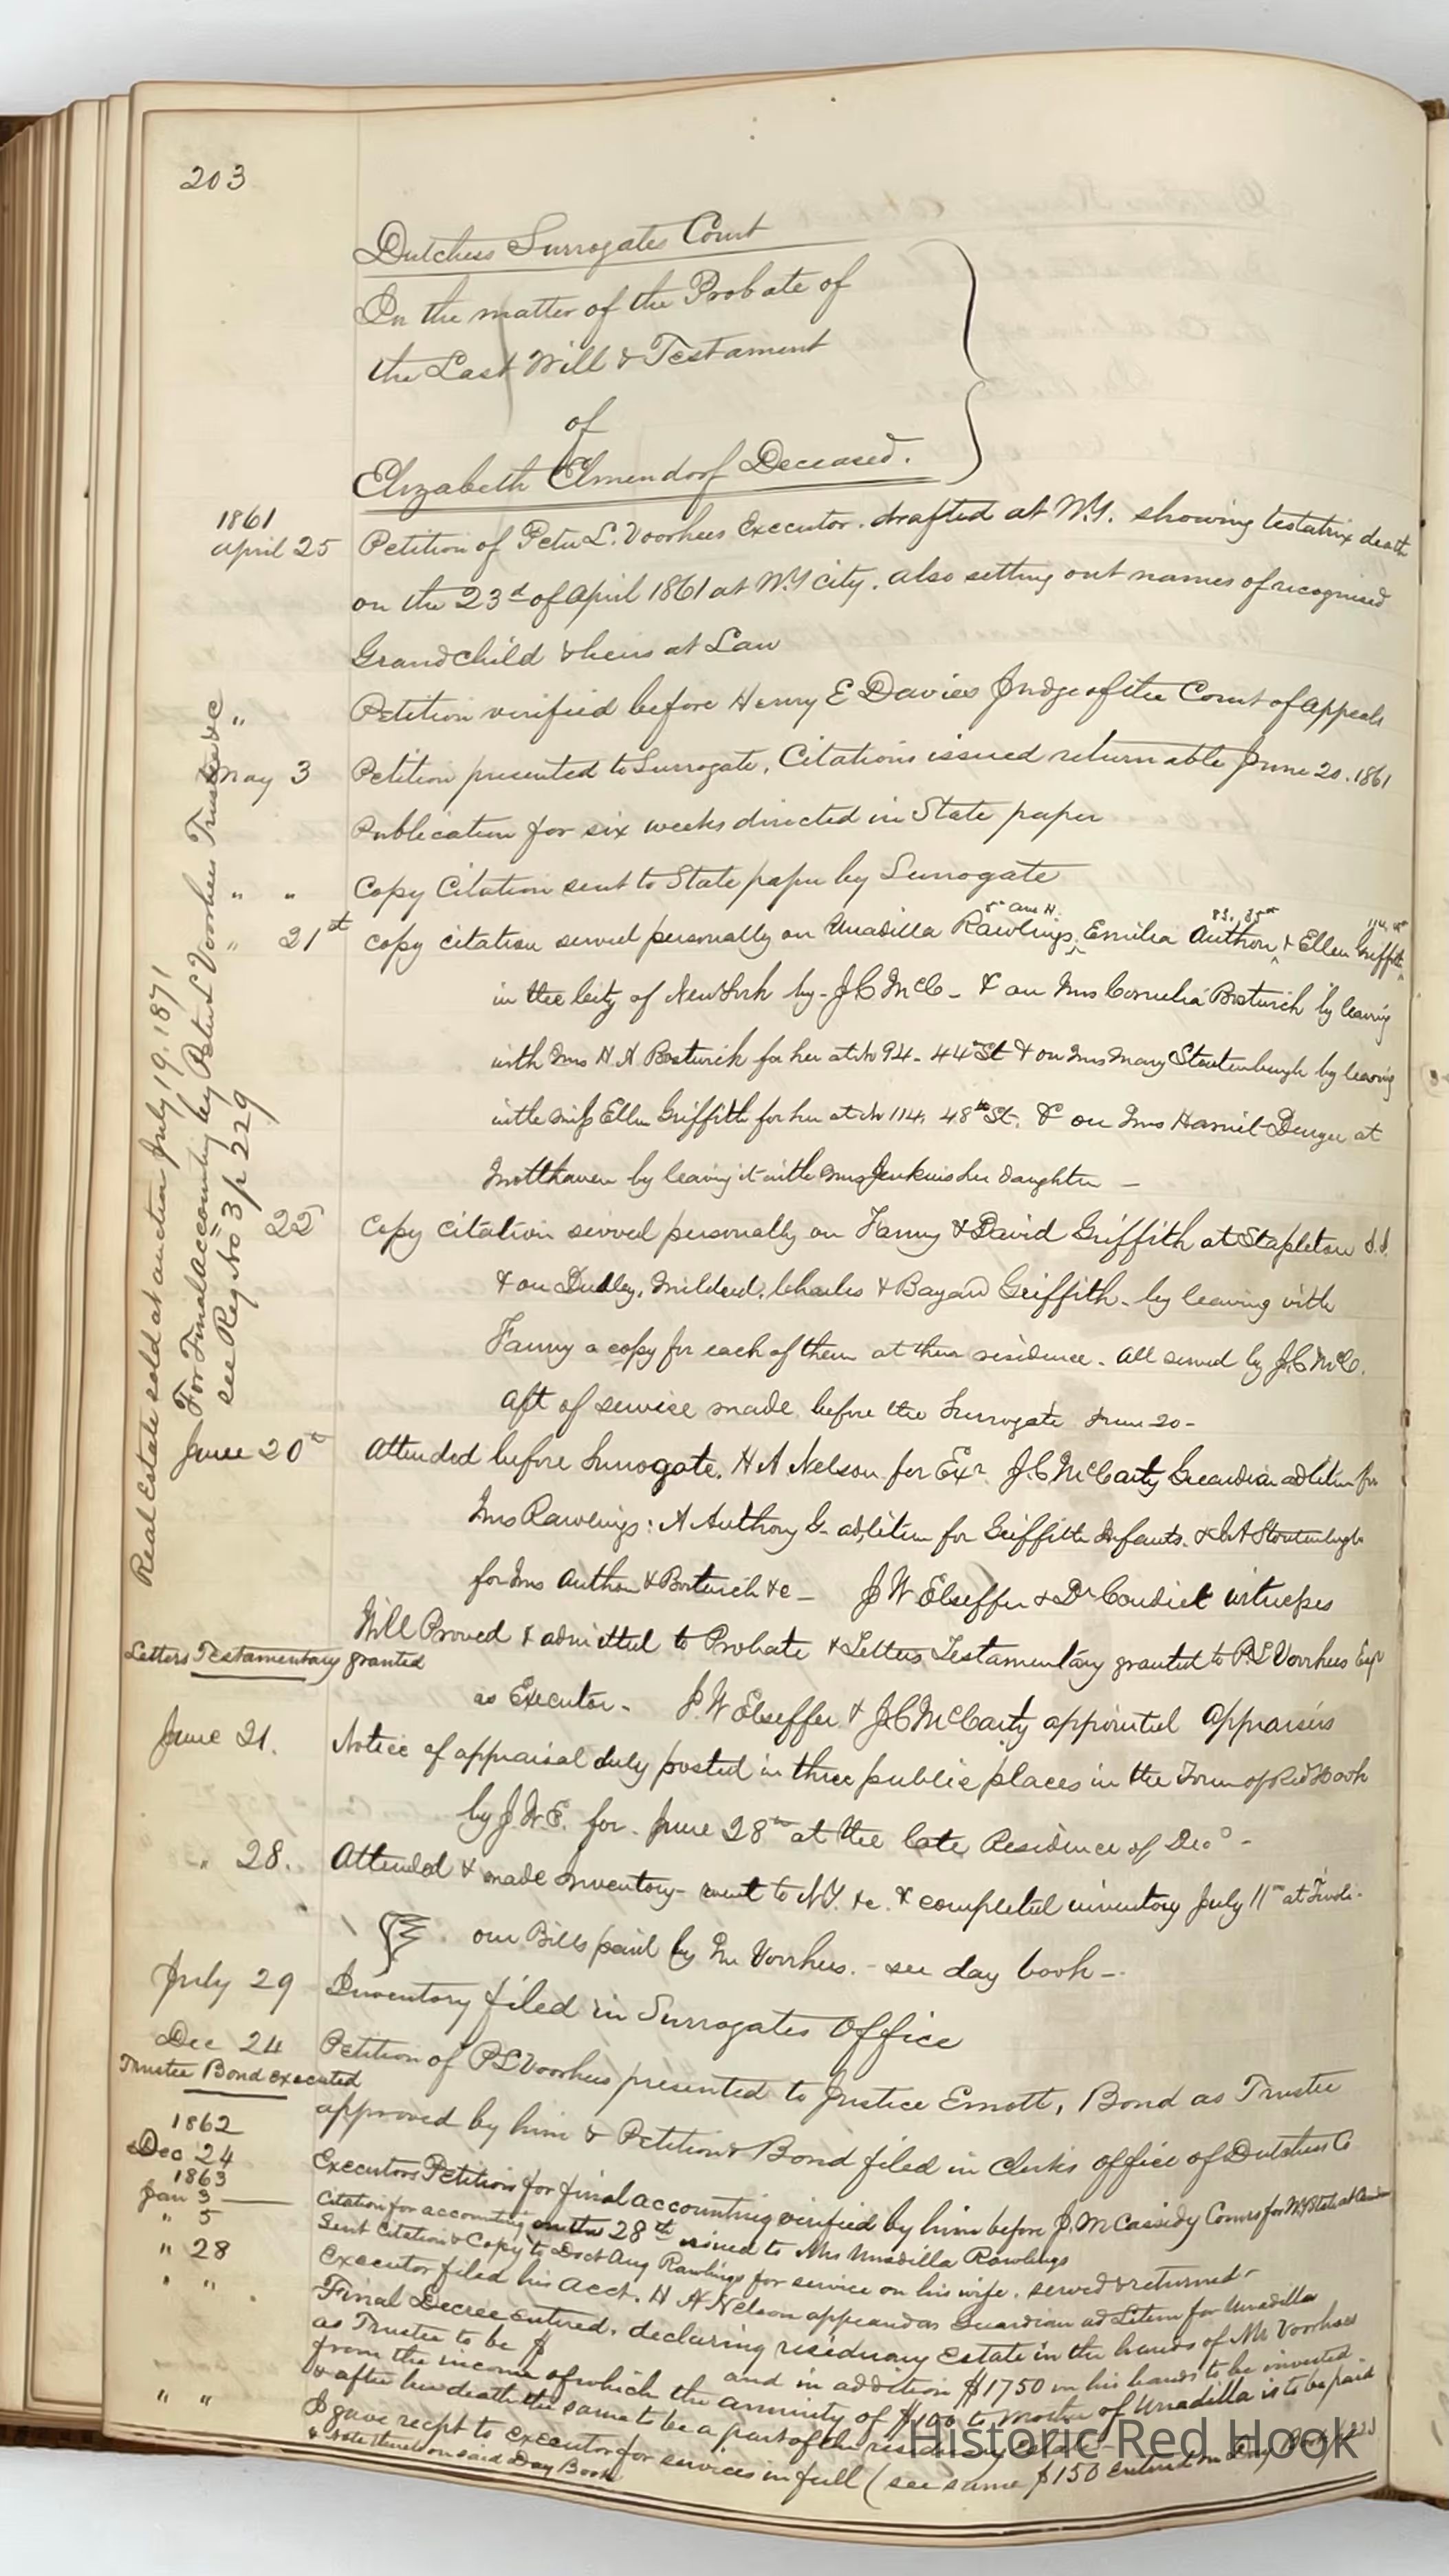 203
Dutchess Surrogates Court
In the matter of the Probate of
the Last Will & Testament
of
Elizabeth Elmendorf Deceased.
1861
April 25 Petition of Peter L. Voorhees Executor. drafted at N.Y. showing testatrix death
on the 23d of April 1861 at N.Y city. also setting out names of recognised
Grandchild & heirs at Law
" Petition verified before Henry E Davies Judge of the Court of Appeals
May 3 Petition presented to Surrogate. Citations issued returnable June 20. 1861
Publication for six weeks directed in State paper
" " Copy Citation sent to State paper by Surrogate
" 21st Copy citation served personally on Unadilla Rawlings, Emilia Authon, & Ellen Griffith
in the City of New York by J C McC - & on Mrs Cornelia Bostwick by leaving
with Mrs H A Bostwick for her at No 94. 44th St & on Mrs Mary Stoutenburgh by leaving
with Miss Ellen Griffith for her at No 114, 48th St. & on Mrs Harriet Denger at
Motthaven by leaving it with Mrs Jenkins her daughter -
22 Copy citation served personally on Fanny & David Griffith at Stapleton S.I.
& on Dudley, Mildred, Charles & Bayard Griffith - by leaving with
Fanny a copy for each of them at their residence. All served by J.C. McC.
Aft of service made before the Surrogate June 20 -
June 20th Attended before Surrogate. H A Nelson for Exr. J. C. McCarty Guardian ad litem for
Mrs Rawlings: A Anthony G- ad litem for Griffith Infants. & Stoutenburgh
for Mrs Authon & Bostwick &c - J W Elseffer & Dr Condict witnesses
Will Proved & admitted to Probate & Letters Testamentary granted to P. L Voorhees Esqr
Letters Testamentary granted
as Executor - J. W Elseffer & J. C McCarty appointed appraisers
June 21. Notice of appraisal duly posted in three public places in the Town of Red Hook
by J. W E. for June 28th at the late Residence of Decd -
" 28. Attended & made Inventory - went to NY. &c. & completed inventory July 11th at Tivoli -
our Bills paid by Mr Voorhees. - see day book -
July 29 Inventory filed in Surrogates Office
Dec 24 Petition of P L Voorhees presented to Justice Emott, Bond as Trustee
Trustee Bond executed
approved by him & Petition & Bond filed in Clerks office of Dutchess Co
1862
Dec 24 Executors Petition for final accounting verified by him before J. M Cassidy Comms for NY State at
1863
Jan 3 Citation for accounting on the 28th issued to Mrs Unadilla Rawlings
" 5 Sent Citation & Copy to Doct Aug Rawlings for service on his wife. served & returned -
" 28 Executor filed his acct. H A Nelson appeared as Guardian ad Litem for Unadilla
" " Final Decree entered. declaring residuary Estate in the hands of Mr Voorhees
as Trustee to be $ and in addition $1750 in his hands to be invested
from the income of which the annuity of $100 to Mother of Unadilla is to be paid
& after her death the same to be a part of the residuary estate
" " I gave receipt to executor for services in full (see same $150 entered in Day Book
& note thereon said Day Book
Real Estate sold at auction July 19. 1871
For Final accounting by Peter L Voorhees Trustee &c
see Reg No 3 p 229
Historic Red Hook